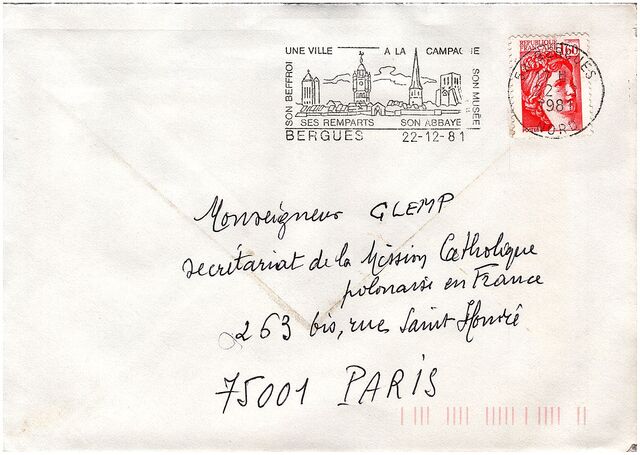 UNE VILLE A LA CAMPAGNE
SON BEFFROI
SON MUSÉE
SES REMPARTS SON ABBAYE
BERGUES 22-12-81
1,60
BERGUES
1981
NORD
Monseigneur GLEMP
secrétariat de la Mission Catholique
polonaise en France
263 bis, rue Saint Honoré
75001 PARIS